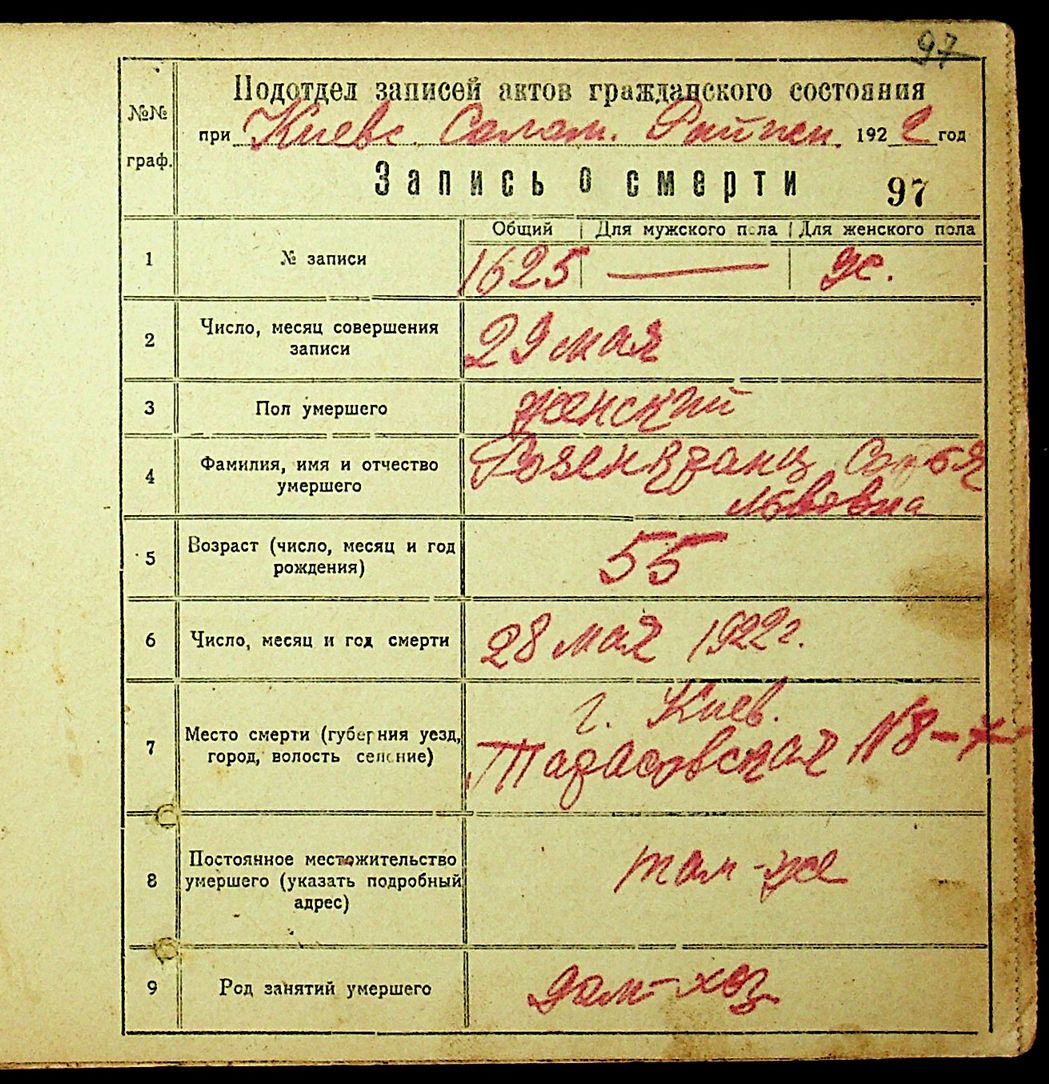 97
№№ граф.
Подотдел записей актов гражданского состояния
при Киевс. Солом. Райпси. 1922 год
Запись о смерти 97
Общий | Для мужского пола | Для женского пола
1 № записи 1625 — ж.
2 Число, месяц совершения записи 29 мая
3 Пол умершего женский
4 Фамилия, имя и отчество умершего Розенкранц Софья
Львовна
5 Возраст (число, месяц и год рождения) 55
6 Число, месяц и год смерти 28 мая 1922 г.
7 Место смерти (губерния уезд, город, волость селение) г. Киев.
Тарасовская № 8 – 7
8 Постоянное местожительство умершего (указать подробный адрес) там-же
9 Род занятий умершего дом-хоз